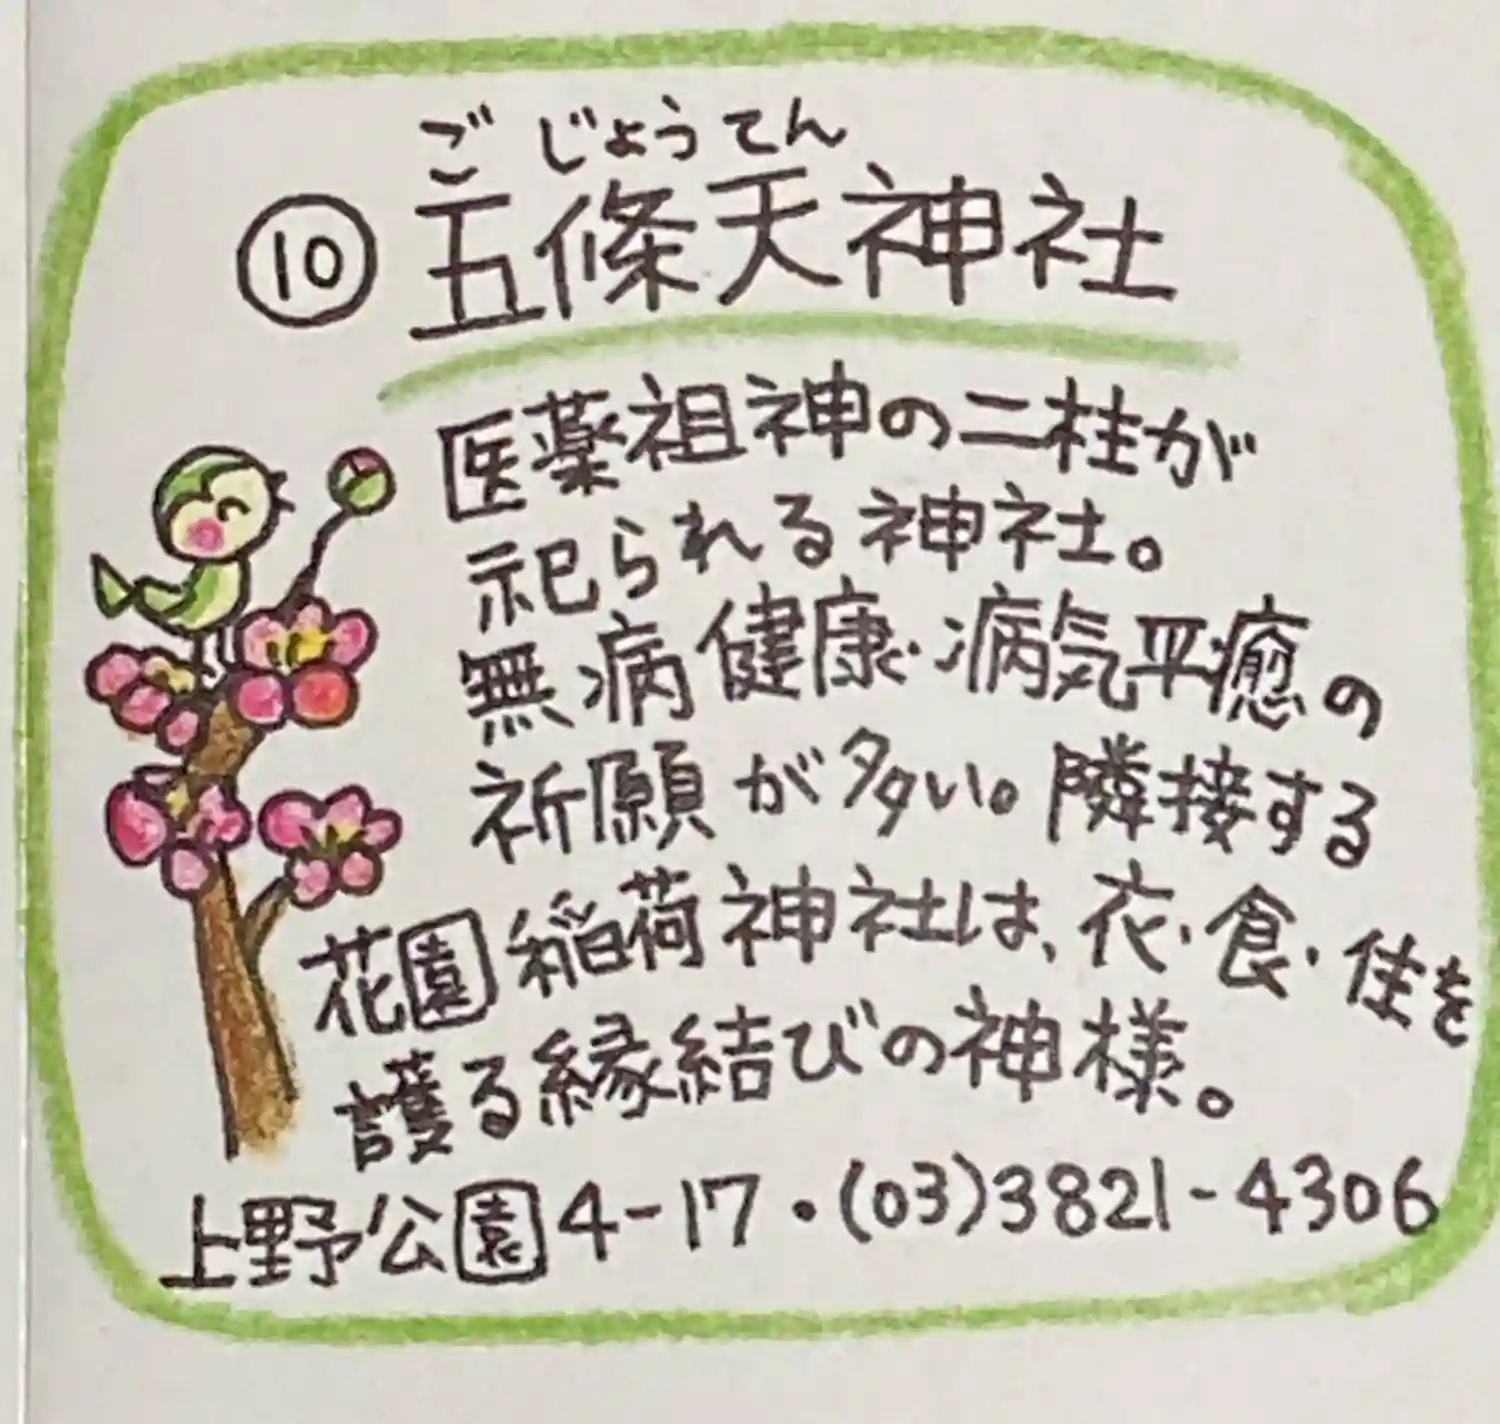 ごじょうてん
⑩五條天神社
医薬祖神の二柱が
祀られる神社。
無病健康・病気平癒の
祈願が多い。隣接する
花園稲荷神社は、衣・食・住を
護る縁結びの神様。
上野公園4-17・(03)3821-4306